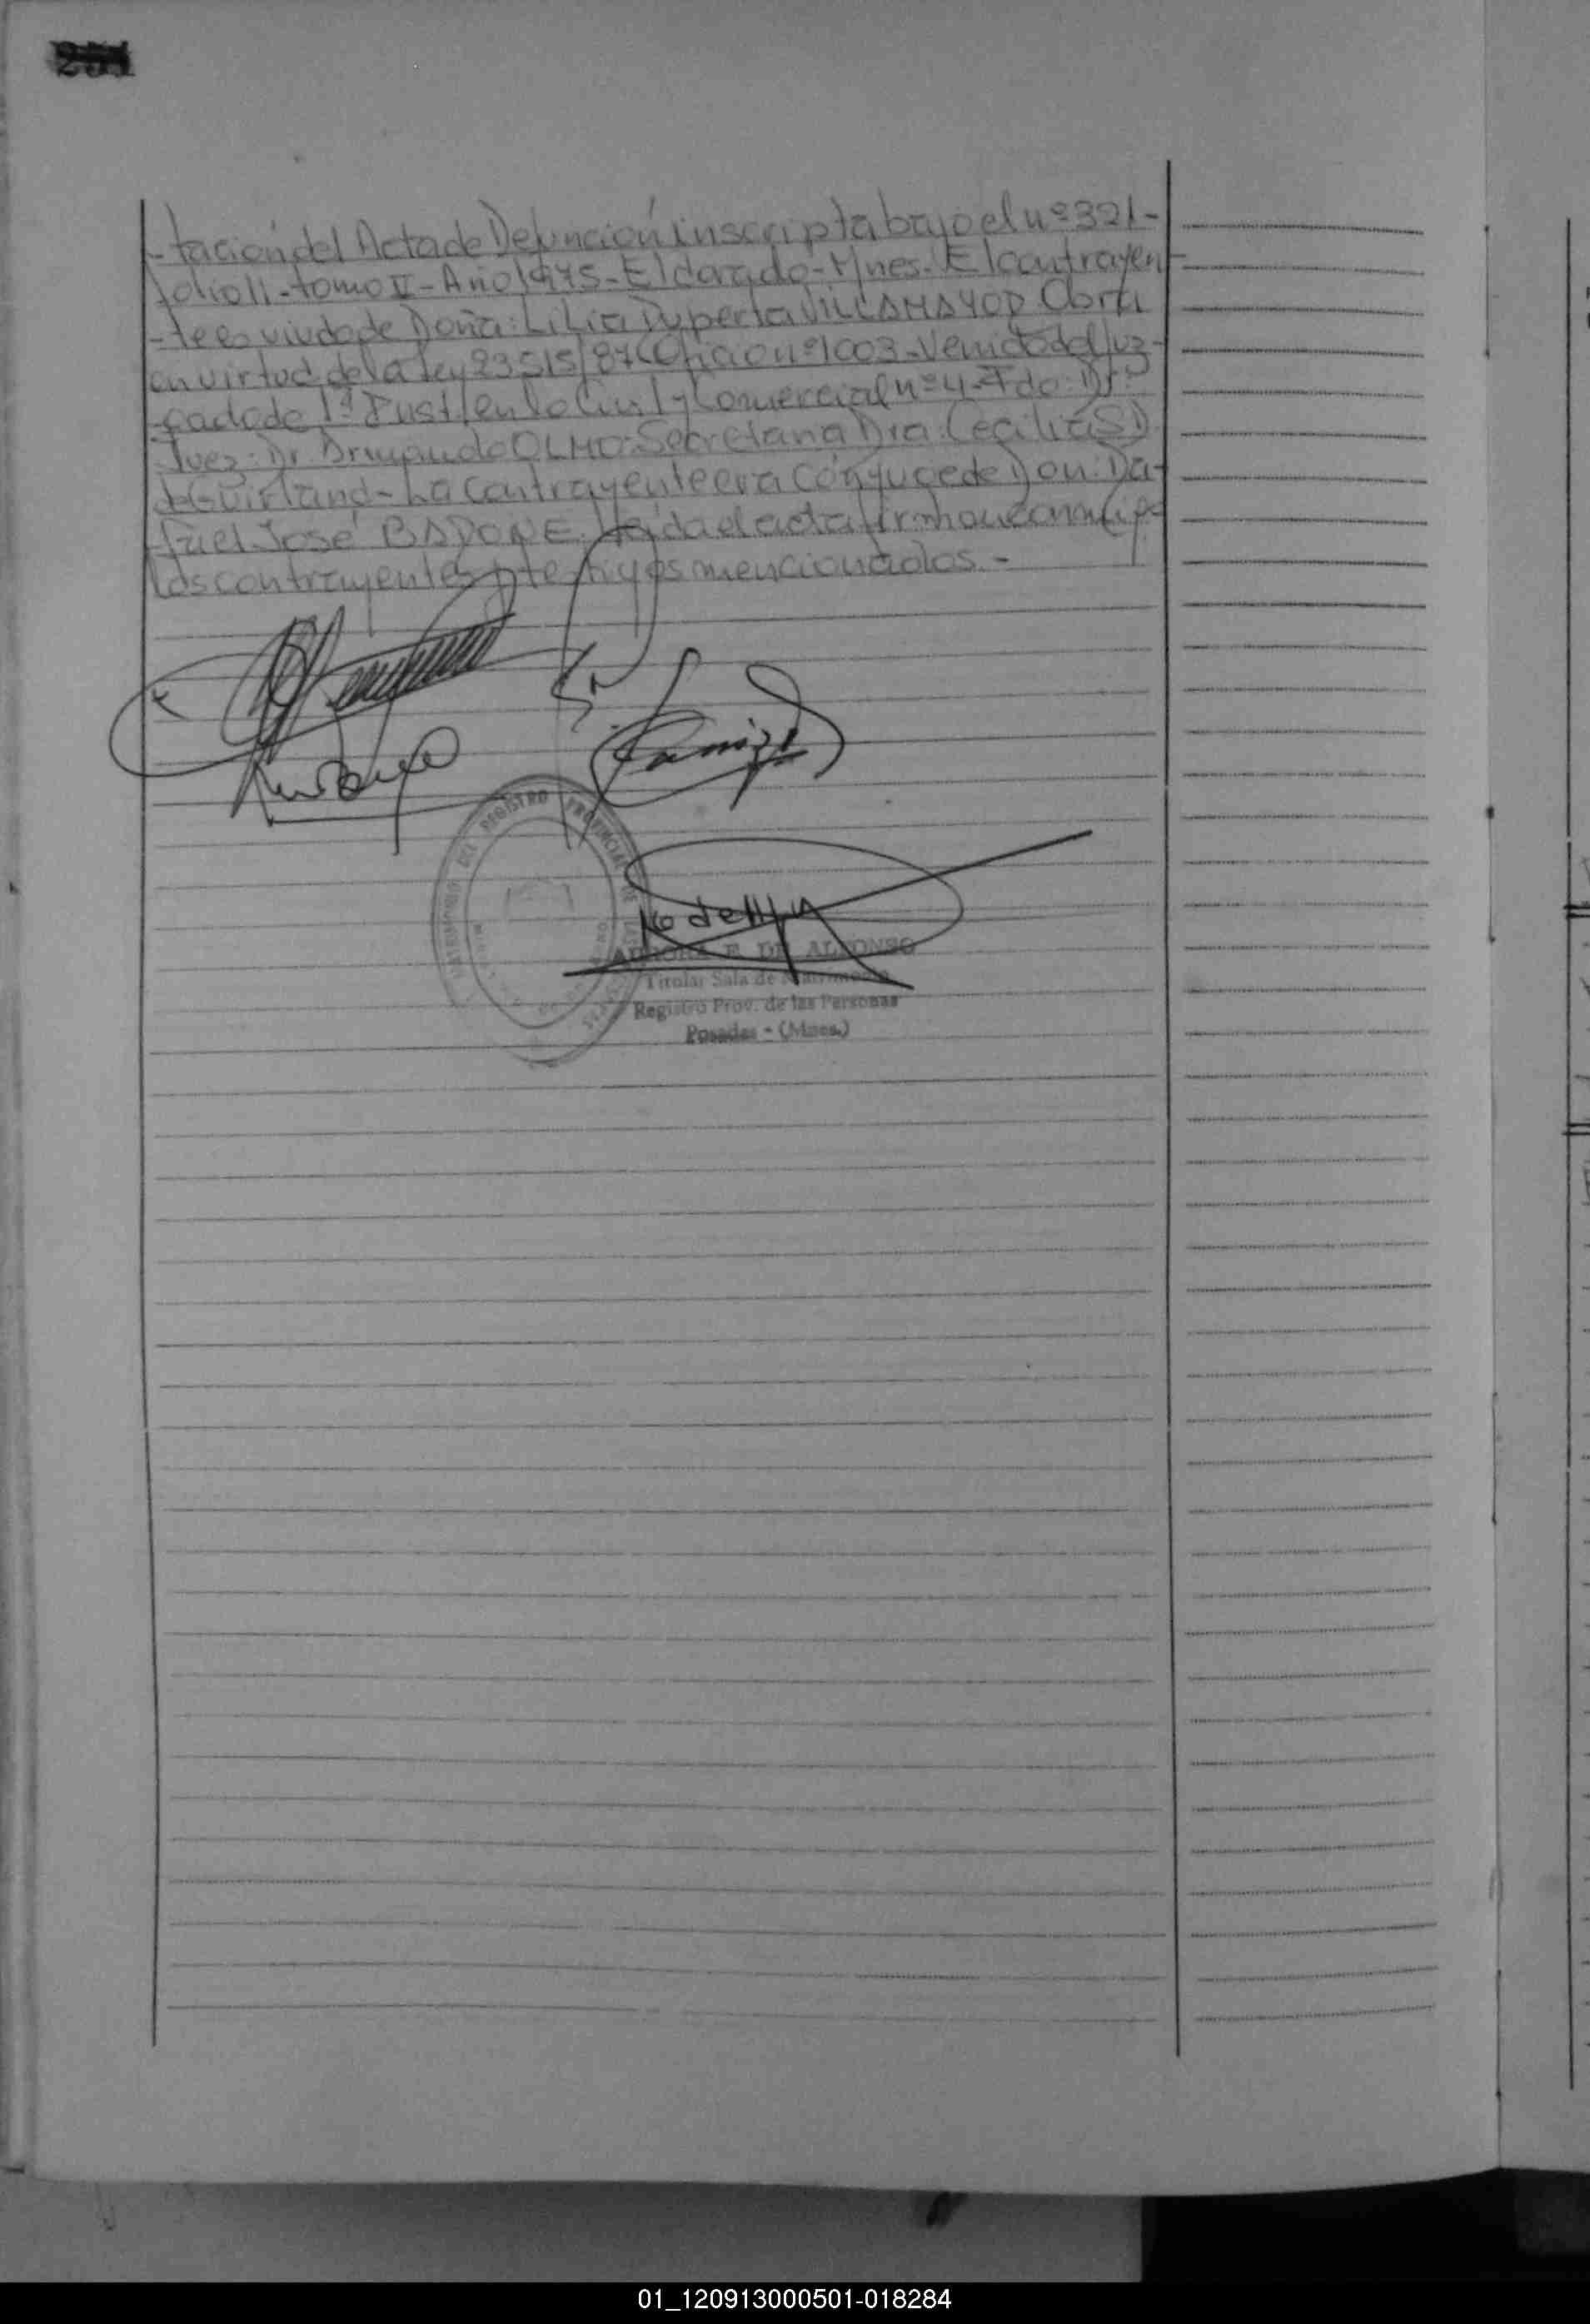 251
-tacion del Acta de Defunción inscripta bajo el nº 321-
folio 11-tomo II-Año 1975-Eldorado-Mnes. El contrayen
-te es viudo de Doña: Lilia Ruperta VILLAMAYOR Obra
en virtud de la Ley 23515/87 (Oficio nº 1003-Venido del Juz-
-gado de 1ª Inst. en lo Civil y Comercial nº 4-Fdo: Dr:
Juez: Dr. Armando OLMO: Secretaria Dra: Cecilia
de Guirland-La Contrayente era Cónyuge de Don: Da-
José BARONE. Leida el acta firman conmigo
los contrayentes y testigos mencionados.-
Ramirez
REGISTRO PROVINCIAL DE LAS
AURORA E. DE ALFONSO
Titular Sala de Matrimonio
Registro Prov. de las Personas
Posadas - (Mnes.)
01_120913000501-018284